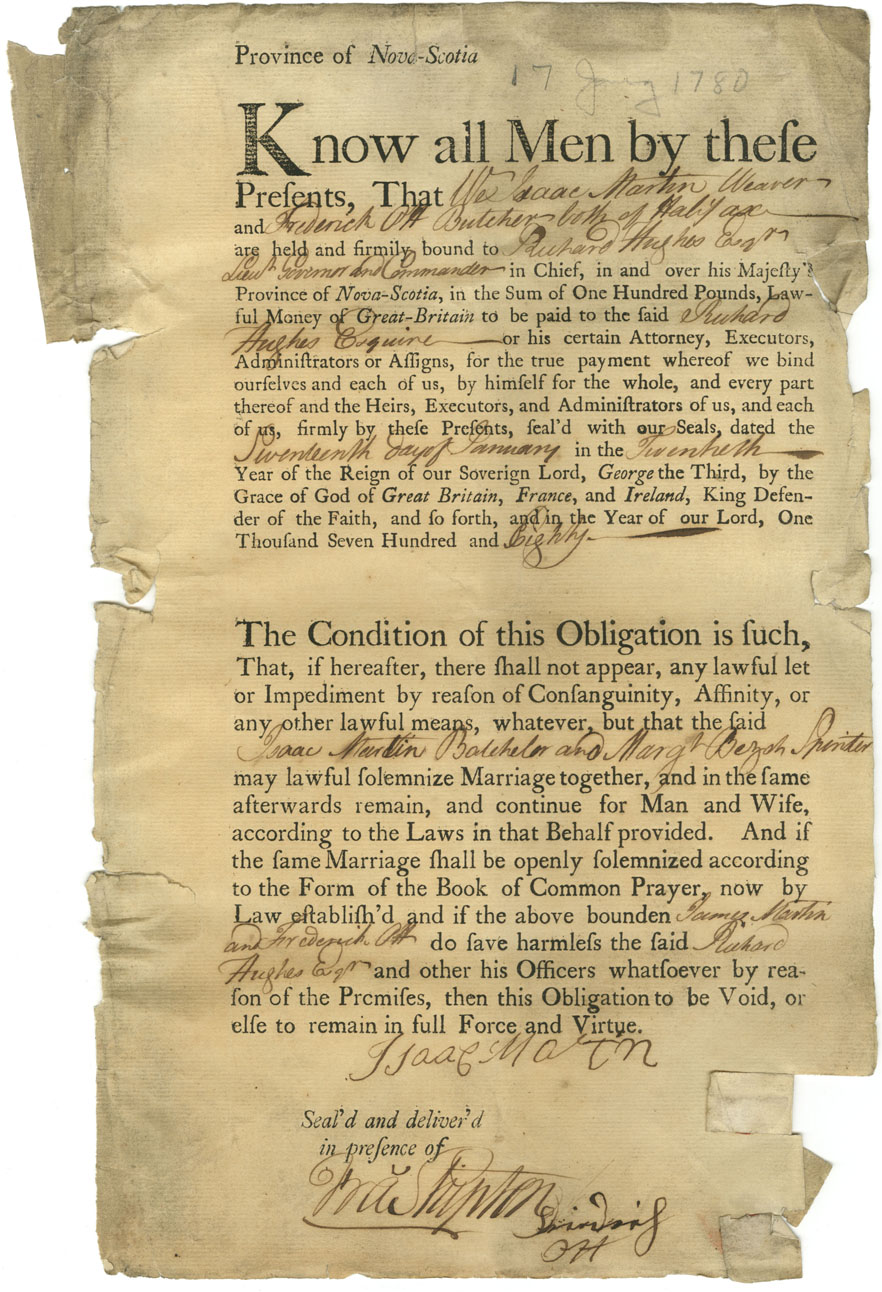 Province of Nova-Scotia
17 Jany 1780
Know all Men by theſe
Preſents, That We Isaac Martin Weaver
and Frederick Ott Butcher both of Halifax
are held and firmily bound to Richard Hughes Esqr
Lieut. Governor and Commander in Chief, in and over his Majeſty's
Province of Nova-Scotia, in the Sum of One Hundred Pounds, Law-
ful Money of Great-Britain to be paid to the ſaid Richard
Hughes Esquire or his certain Attorney, Executors,
Adminiſtrators or Aſſigns, for the true payment whereof we bind
ourſelves and each of us, by himſelf for the whole, and every part
thereof and the Heirs, Executors, and Adminiſtrators of us, and each
of us, firmly by theſe Preſents, ſeal'd with our Seals, dated the
Seventeenth day of January in the Twentieth
Year of the Reign of our Soverign Lord, George the Third, by the
Grace of God of Great Britain, France, and Ireland, King Defen-
der of the Faith, and ſo forth, and in the Year of our Lord, One
Thouſand Seven Hundred and Eighty
The Condition of this Obligation is ſuch,
That, if hereafter, there ſhall not appear, any lawful let
or Impediment by reaſon of Conſanguinity, Affinity, or
any other lawful means, whatever, but that the ſaid
Isaac Martin Batchelor and Margt Spinster
may lawful ſolemnize Marriage together, and in the ſame
afterwards remain, and continue for Man and Wife,
according to the Laws in that Behalf provided. And if
the ſame Marriage ſhall be openly ſolemnized according
to the Form of the Book of Common Prayer, now by
Law eſtabliſh'd and if the above bounden James Martin
and Frederick Ott do ſave harmleſs the ſaid Richard
Hughes Esqr and other his Officers whatſoever by rea-
ſon of the Premiſes, then this Obligation to be Void, or
elſe to remain in full Force and Virtue.
Isaac Martin
Seal'd and deliver'd
in preſence of
Shipton
Friedrich
Ott